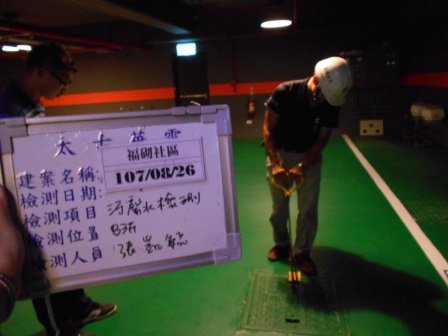 太士英電
建案名稱: 福砌社區
檢測日期: 107/08/26
檢測項目 污廢水檢測
檢測位置 B3F
檢測人員 張凱